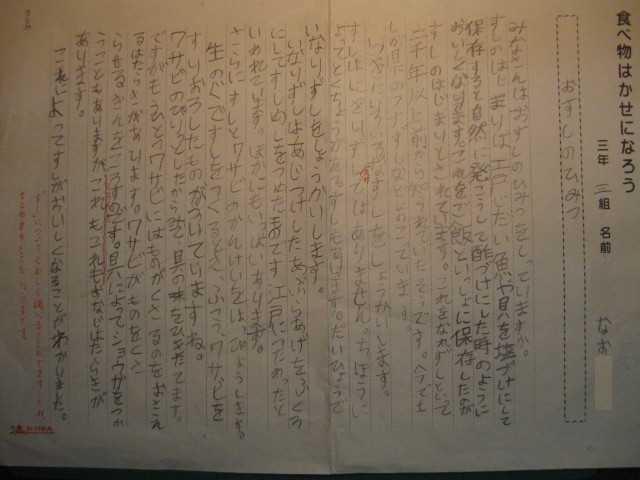 食べ物はかせになろう
三年 二組 名前 なお
おすしのひみつ
みなさんはおすしのひみつをしっていますか。
すしのはじまりは江戸じだい魚や貝を塩づけにして
保存すると自然に発こうして酢づけにした時のように
おいしくなります。これをご飯といっしょに保存したのが
すしのはじまりとされています。これをなれずしといって
二千年以上前から知られていたそうです。今でも
しが県でのフナずしなどとしのこっています。
つぎにいろいろなすしをしょうかいします。
すしはにぎりずしではありません。ちほうに
よってとくちょうがあるすしもあります。だいひょうで
いなりずしをしょうかいします。
いなりずしはあじつけしたあぶらあげをふくろ
にしてすしめしをつめたものです。江戸につたわったと
いわれています。ほかにもいっぱいあります。
さらにすしとワサビのかんけいをはっぴょうします。
生のネタですしをつくるとき、ふつう、ワサビを
すりおろしたものがついていますね。
ワサビのぴりっとしたからみで、具の味をひきたてます。
ですがもうひとつワサビにはものがくさるのをおさえ
るはたらきがあります。ワサビがものをくさ
らせるきんをころすのです。具によってショウガをつか
うこともありますがこれもきんをころすはたらきが
あります。
これによってすしがおいしくなることがわかりました。